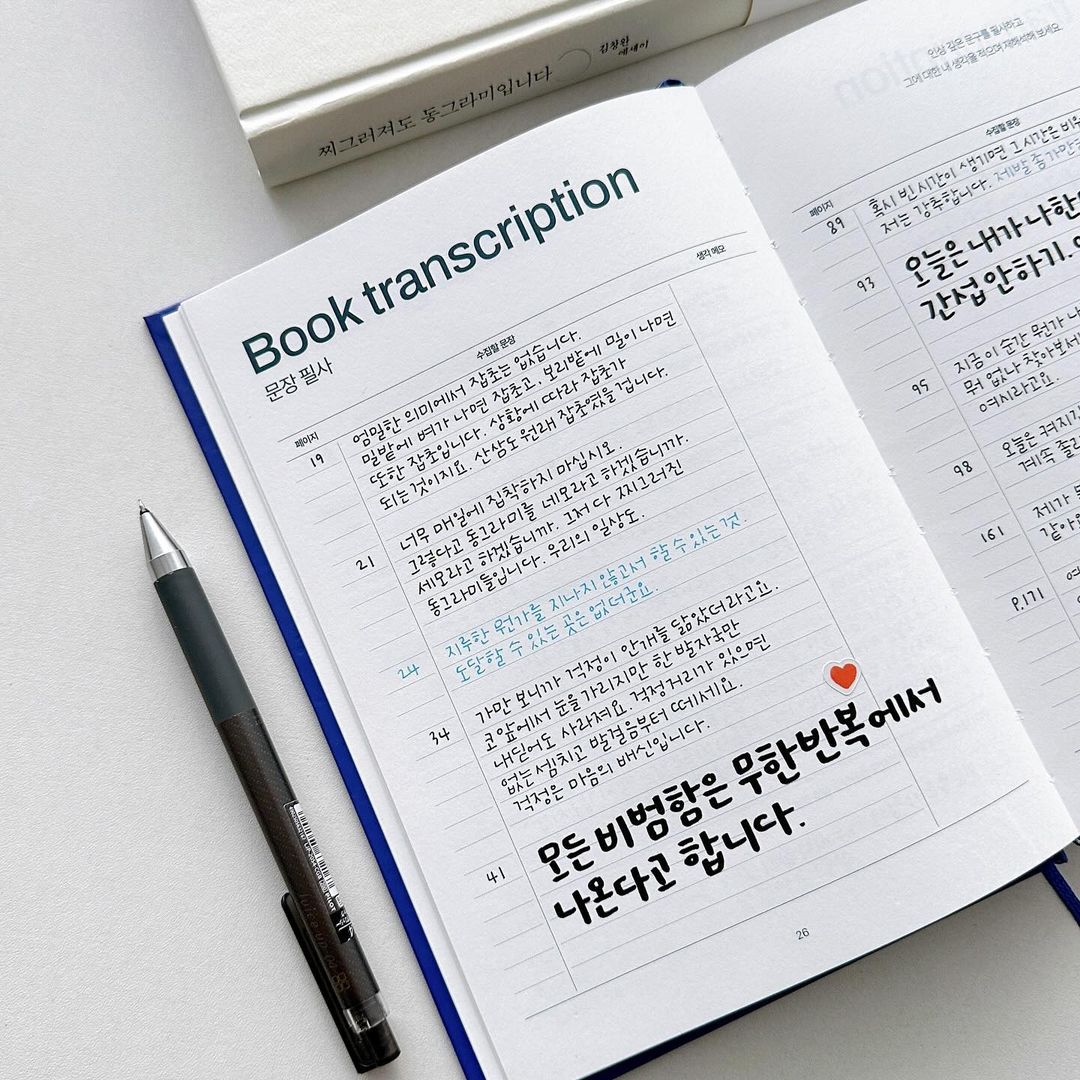 찌그러져도 동그라미입니다
김창완
에세이
Book transcription
문장 필사
페이지
수집할 문장
생각 메모
19
엄밀한 의미에서 잡초는 없습니다.
밀밭에 벼가 나면 잡초고, 보리밭에 밀이 나면
또한 잡초입니다. 상황에 따라 잡초가
되는 것이지요. 산삼도 원래 잡초였을 겁니다.
21
너무 매일에 집착하지 마십시오.
그렇다고 동그라미를 네모라고 하겠습니까.
세모라고 하겠습니까. 그저 다 찌그러진
동그라미들입니다. 우리의 일상도.
24
지루한 뭔가를 지나지 않고서 할 수 있는 것.
도달할 수 있는 곳은 없더군요.
34
가만 보니가 걱정이 안개를 닮았더라고요.
코 앞에서 눈을 가리지만 한 발자국만
내딛어도 사라져요. 걱정거리가 있으면
없는 셈치고 발걸음부터 떼세요.
걱정은 마음의 배신입니다.
41
모든 비범함은 무한 반복에서
나온다고 합니다.
26
인상 깊은 문구를 필사하고
그에 대한 내 생각을 적으며 재해석해 보세요.
페이지
수집할 문장
89
혹시 빈 시간이 생기면 그 시간은 비워
저는 강추합니다. 제발 종가만
93
오늘은 내가 나한
간섭 안하기.
95
지금 이 순간 뭔가 나
뭐 없나 찾아보세
여시라고요.
98
오늘은 켜지
계속 졸
161
제가
같아
P.171